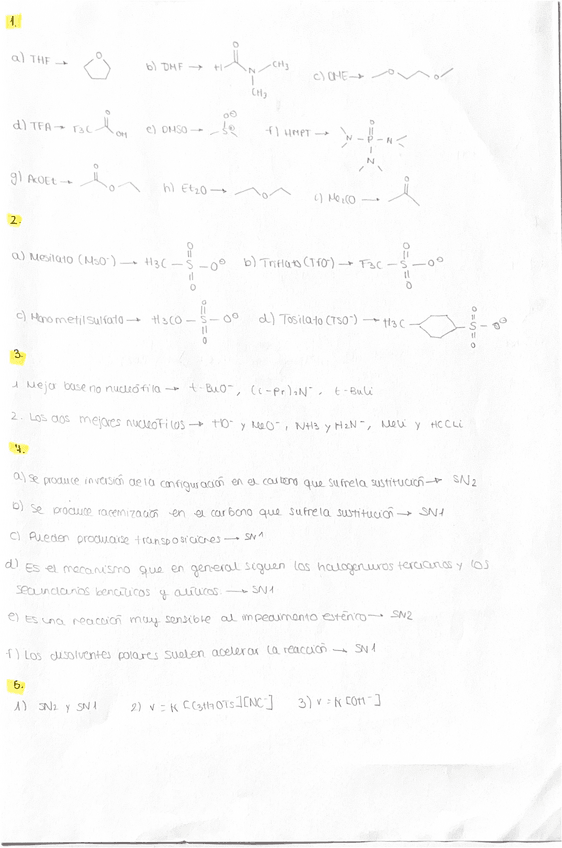 1.
a) THF → O b) DMF → H O N CH3 CH3 c) DME → O O
d) TFA → F3C O OH e) DMSO → O⊖ S⊕ f) HMPT → N O P N N
g) AcOEt → O O h) Et2O → O i) Me2CO → O
2.
a) Mesilato (MsO⁻) → H3C - S - O⊖ O O b) Triflato (TfO⁻) → F3C - S - O⊖ O O
c) Monometilsulfato → H3CO - S - O⊖ O O d) Tosilato (TsO⁻) → H3C - S - O⊖ O O
3.
1. Mejor base no nucleófila → t-BuO⁻, (i-Pr)2N⁻, t-BuLi
2. Los dos mejores nucleófilos → HO⁻ y MeO⁻, NH3 y H2N⁻, MeLi y HCCLi
4.
a) Se produce inversión de la configuración en el carbono que sufre la sustitución → SN2
b) Se produce racemización en el carbono que sufre la sustitución → SN1
c) Pueden producirse transposiciones → SN1
d) Es el mecanismo que en general siguen los halogenuros terciarios y los
secundarios bencílicos y alílicos. → SN1
e) Es una reacción muy sensible al impedimento estérico → SN2
f) Los disolventes polares suelen acelerar la reacción → SN1
5.
1) SN2 y SN1 2) v = K [C3H7OTs][NC⁻] 3) v = K [OH⁻]